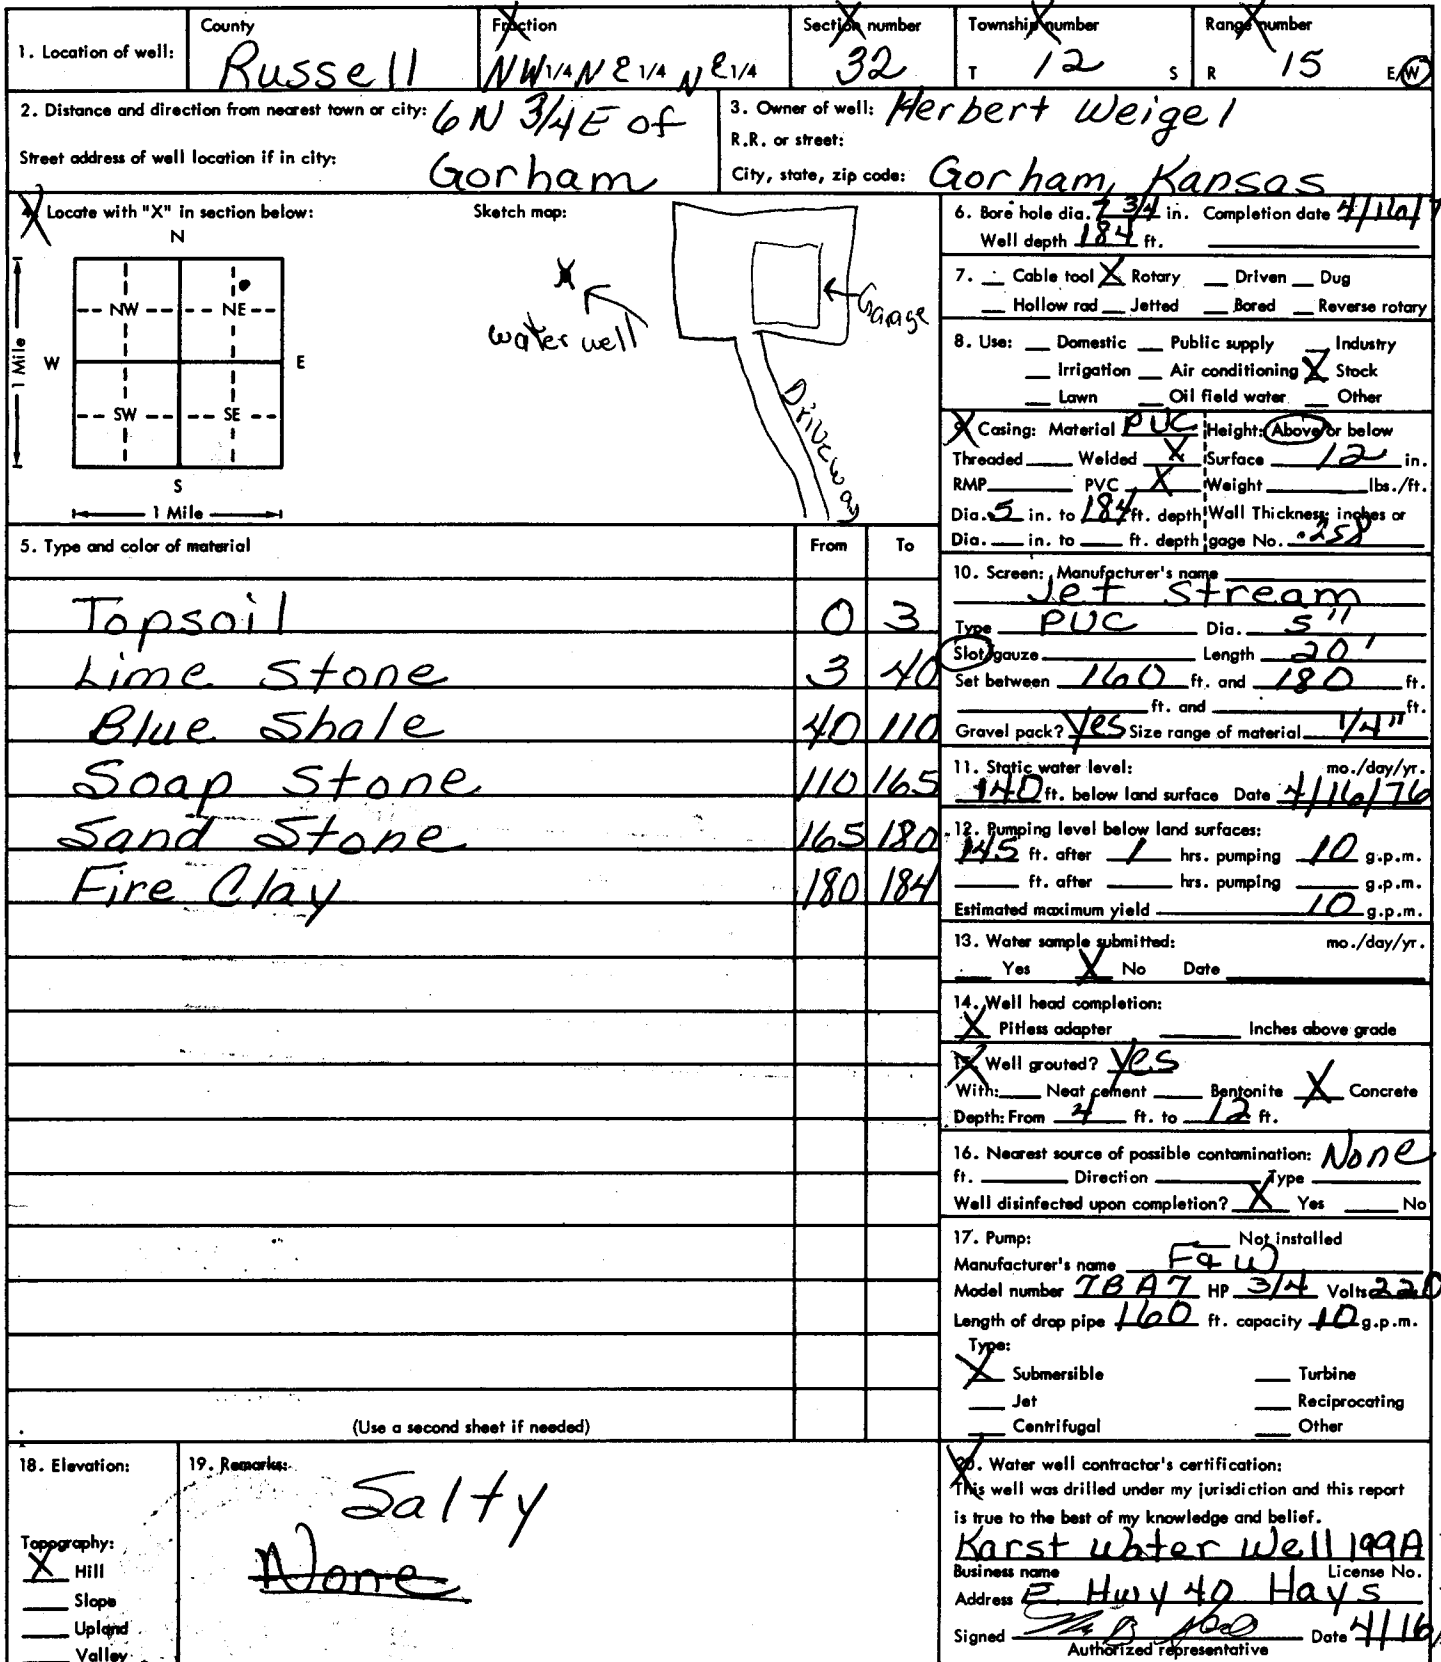 1. Location of well:
County
Russell
Fraction
NW 1/4 NE 1/4 NE 1/4
Section number
32
Township number
T 12 S
Range number
R 15 E/W
2. Distance and direction from nearest town or city: 6 N 3/4 E of
Street address of well location if in city:
Gorham
3. Owner of well: Herbert Weigel
R.R. or street:
City, state, zip code: Gorham, Kansas
4. Locate with "X" in section below:
N
NW NE
W E
SW SE
S
1 Mile
1 Mile
Sketch map:
X
water well
Garage
Driveway
5. Type and color of material From To
Topsoil 0 3
Lime Stone 3 40
Blue Shale 40 110
Soap Stone 110 165
Sand Stone 165 180
Fire Clay 180 184
(Use a second sheet if needed)
6. Bore hole dia. 7 3/4 in. Completion date 4/16/7
Well depth 184 ft.
7. Cable tool X Rotary Driven Dug
Hollow rad Jetted Bored Reverse rotary
8. Use: Domestic Public supply Industry
Irrigation Air conditioning X Stock
Lawn Oil field water Other
9. Casing: Material PVC Height: Above or below
Threaded Welded X Surface 12 in.
RMP PVC X Weight lbs./ft.
Dia. 5 in. to 184 ft. depth Wall Thickness: inches or
Dia. in. to ft. depth gage No. .258
10. Screen: Manufacturer's name
Jet Stream
Type PVC Dia. 5"
Slot/gauze Length 20'
Set between 160 ft. and 180 ft.
ft. and ft.
Gravel pack? Yes Size range of material 1/4"
11. Static water level: mo./day/yr.
140 ft. below land surface Date 4/16/76
12. Pumping level below land surfaces:
145 ft. after 1 hrs. pumping 10 g.p.m.
ft. after hrs. pumping g.p.m.
Estimated maximum yield 10 g.p.m.
13. Water sample submitted: mo./day/yr.
Yes X No Date
14. Well head completion:
X Pitless adapter Inches above grade
15. Well grouted? Yes
With: Neat cement Bentonite X Concrete
Depth: From 4 ft. to 12 ft.
16. Nearest source of possible contamination: None
ft. Direction Type
Well disinfected upon completion? X Yes No
17. Pump: Not installed
Manufacturer's name F&W
Model number 7BA7 HP 3/4 Volts 220
Length of drop pipe 160 ft. capacity 10 g.p.m.
Type:
X Submersible Turbine
Jet Reciprocating
Centrifugal Other
18. Elevation:
Topography:
X Hill
Slope
Upland
Valley
19. Remarks:
Salty
None
20. Water well contractor's certification:
This well was drilled under my jurisdiction and this report
is true to the best of my knowledge and belief.
Karst Water Well 199A
Business name License No.
Address E. Hwy 40 Hays
Signed Date 4/16/
Authorized representative